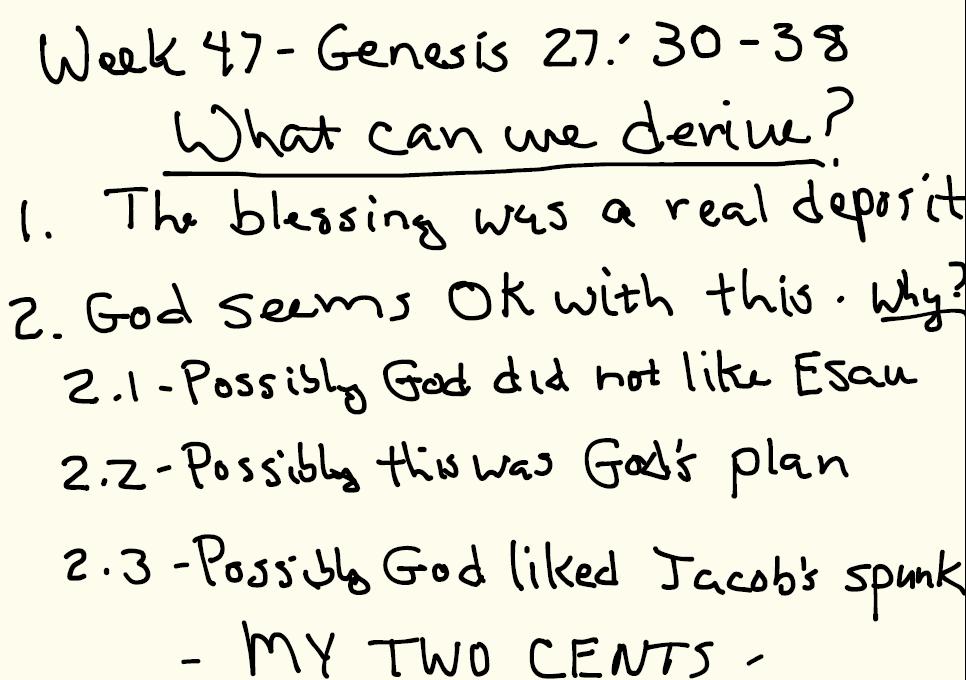 Week 47 - Genesis 27: 30 - 38
What can we derive?
1. The blessing was a real deposit
2. God seems OK with this. Why?
2.1 - Possibly God did not like Esau
2.2 - Possibly this was God's plan
2.3 - Possibly God liked Jacob's spunk
- MY TWO CENTS -